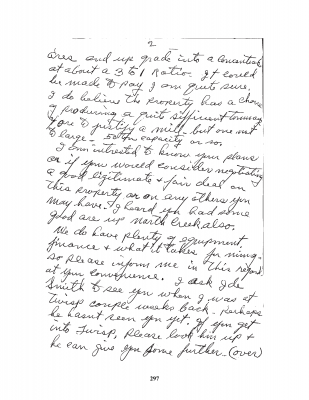 2
ores and up grade into a concentrate
at about a 3 to 1 Ratio. It could
be made to pay I am quite sure.
I do believe the property has a chance
of producing a quite sufficient tonnage
of ore to justify a mill but one not
to large - 50 ton capacity or so.
I am intrested to know your plans
or if you would consider negotiating
a good legitimate & fair deal on
this property or on any others you
may have. I heard you had some
good ore up North Creek also.
We do have plenty of equipment,
finance & what it takes for mining.
so please inform me in this regard
at your convenience. I ask
Smith to see you when I was at
Twisp couple weeks back. Perhaps
he hasnt seen you yet. If you get
into Twisp, please look him up &
he can give you some further - (over)
297